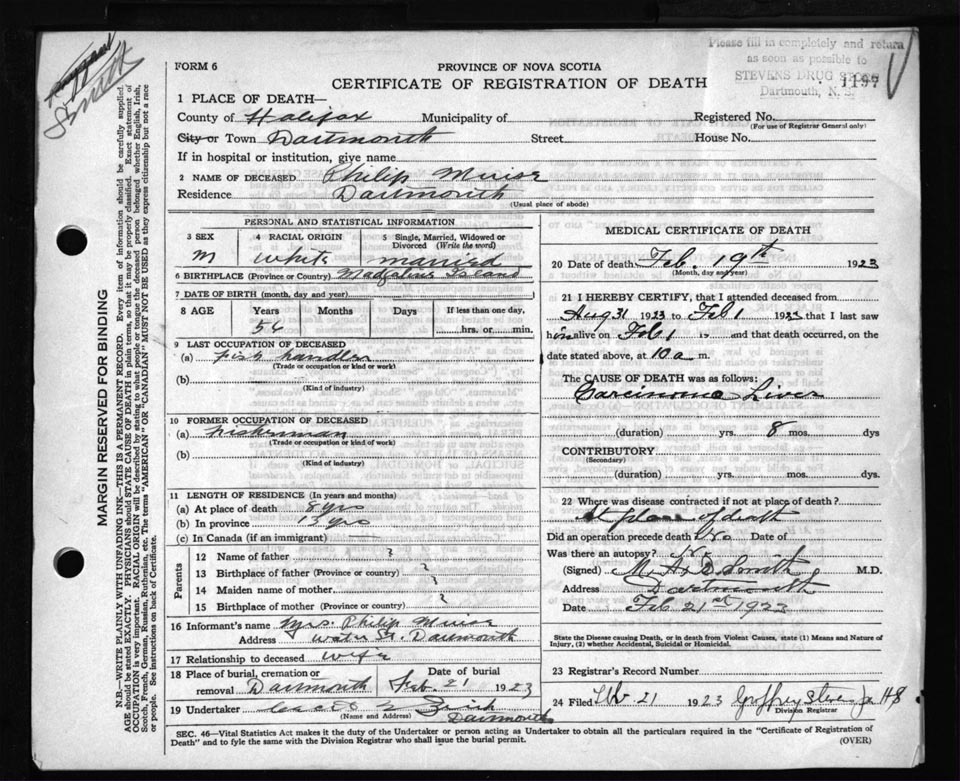 Please fill in completely and return
as soon as possible to
STEVENS DRUG STORE
Dartmouth, N. S.
1197
Smith
FORM 6
PROVINCE OF NOVA SCOTIA
CERTIFICATE OF REGISTRATION OF DEATH
1 PLACE OF DEATH—
County of Halifax Municipality of Registered No.
(For use of Registrar General only)
City or Town Dartmouth Street House No.
If in hospital or institution, give name
2 NAME OF DECEASED Philip Muise
Residence Dartmouth
(Usual place of abode)
PERSONAL AND STATISTICAL INFORMATION
3 SEX 4 RACIAL ORIGIN 5 Single, Married, Widowed or
Divorced (Write the word)
M White married
6 BIRTHPLACE (Province or Country) Madgalins Island
7 DATE OF BIRTH (month, day and year)
8 AGE Years Months Days If less than one day,
56 hrs. or min.
9 LAST OCCUPATION OF DECEASED
(a) fish handler
(Trade or occupation or kind or work)
(b)
(Kind of industry)
10 FORMER OCCUPATION OF DECEASED
(a) fisherman
(Trade or occupation or kind of work)
(b)
(Kind of industry)
11 LENGTH OF RESIDENCE (In years and months)
(a) At place of death 8 yrs
(b) In province 13 yrs
(c) In Canada (if an immigrant) —
Parents
12 Name of father ?
13 Birthplace of father (Province or country) ?
14 Maiden name of mother ?
15 Birthplace of mother (Province or country) ?
16 Informant's name Mrs. Philip Muise
Address Water St. Dartmouth
17 Relationship to deceased wife
18 Place of burial, cremation or Date of burial
removal Dartmouth Feb. 21 1923
19 Undertaker
(Name and Address) Dartmouth
MEDICAL CERTIFICATE OF DEATH
20 Date of death Feb. 19th 1923
(Month, day and year)
21 I HEREBY CERTIFY, that I attended deceased from
Aug 31 1923 to Feb 1 1923 that I last saw
him alive on Feb 1 19 and that death occurred, on the
date stated above, at 10 a m.
The CAUSE OF DEATH was as follows:
Carcinoma Liver
(duration) yrs. 8 mos. dys
CONTRIBUTORY
(Secondary)
(duration) yrs. mos. dys.
22 Where was disease contracted if not at place of death?
At place of death
Did an operation precede death No Date of
Was there an autopsy? No
(Signed) M. A. B. Smith M.D.
Address Dartmouth
Date Feb 21st 1923
State the Disease causing Death, or in death from Violent Causes, state (1) Means and Nature of
Injury, (2) whether Accidental, Suicidal or Homicidal.
23 Registrar's Record Number
24 Filed Feb 21 1923
Division Registrar
SEC. 46—Vital Statistics Act makes it the duty of the Undertaker or person acting as Undertaker to obtain all the particulars required in the "Certificate of Registration of
Death" and to fyle the same with the Division Registrar who shall issue the burial permit. (OVER)
MARGIN RESERVED FOR BINDING
N.B.—WRITE PLAINLY WITH UNFADING INK—THIS IS A PERMANENT RECORD. Every item of information should be carefully supplied.
AGE should be stated EXACTLY. PHYSICIANS should STATE CAUSE OF DEATH in plain terms, so that it may be properly classified. Exact statement of
OCCUPATION is very important. RACIAL ORIGIN will be described by stating to what people or tongue the deceased person belonged whether English, Irish,
Scotch, French, German, Russian, Ruthenian, etc. The terms "AMERICAN" OR "CANADIAN" MUST NOT BE USED as they express citizenship but not a race
or people. See instructions on back of Certificate.